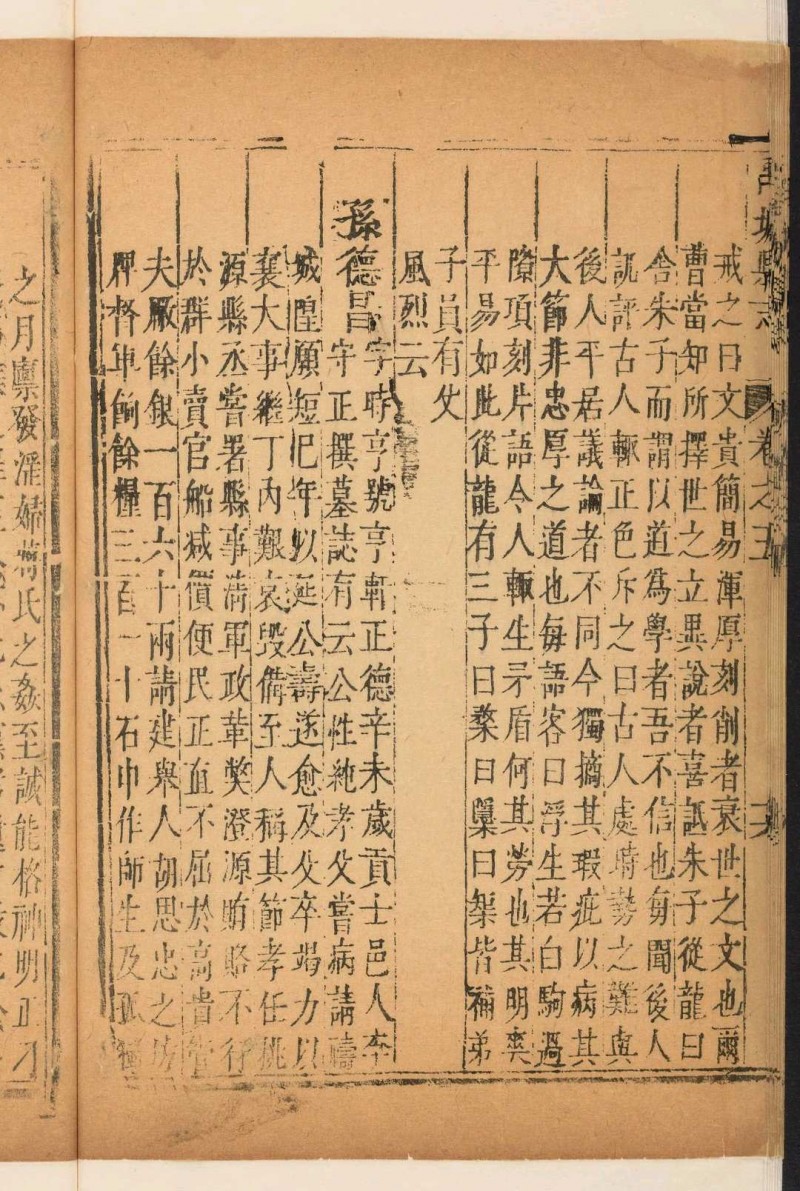 城縣志 卷之五
戒之曰文貴簡易渾厚刻削者衰世之文也爾
曹當知所擇世之立異說者喜詆朱子從龍曰
舍朱子而謂以道爲學者吾不信也每聞後人
詆評古人輒正色斥之曰古人處時勢之難與
後人平居議論者不同今獨摘其瑕疵以病其
大節非忠厚之道也每語客曰浮生若白駒過
隙項刻片語令人輒生矛盾何其勞也其明爽
平易如此從龍有三子曰曰曰皆補弟
子員有父
風烈云
孫德昌字時亨號亨軒正德辛未歲貢士邑人李
守正撰墓誌有云公性純孝父嘗病請禱
城隍願短巳年以延公壽遂愈及父卒竭力以
襄大事繼丁內艱哀毀備至人稱其節孝任
源縣丞嘗署縣事淸軍政革獘澄源賄賂不行
於群小賣官船減價便民正直不屈於高貴
夫厰餘銀一百六十兩請建舉人胡思忠之坊
牌督軍餉餘糧三百一十石申作師生及孤
之月廩發淫婦蔣氏之姦至誠能格神明正